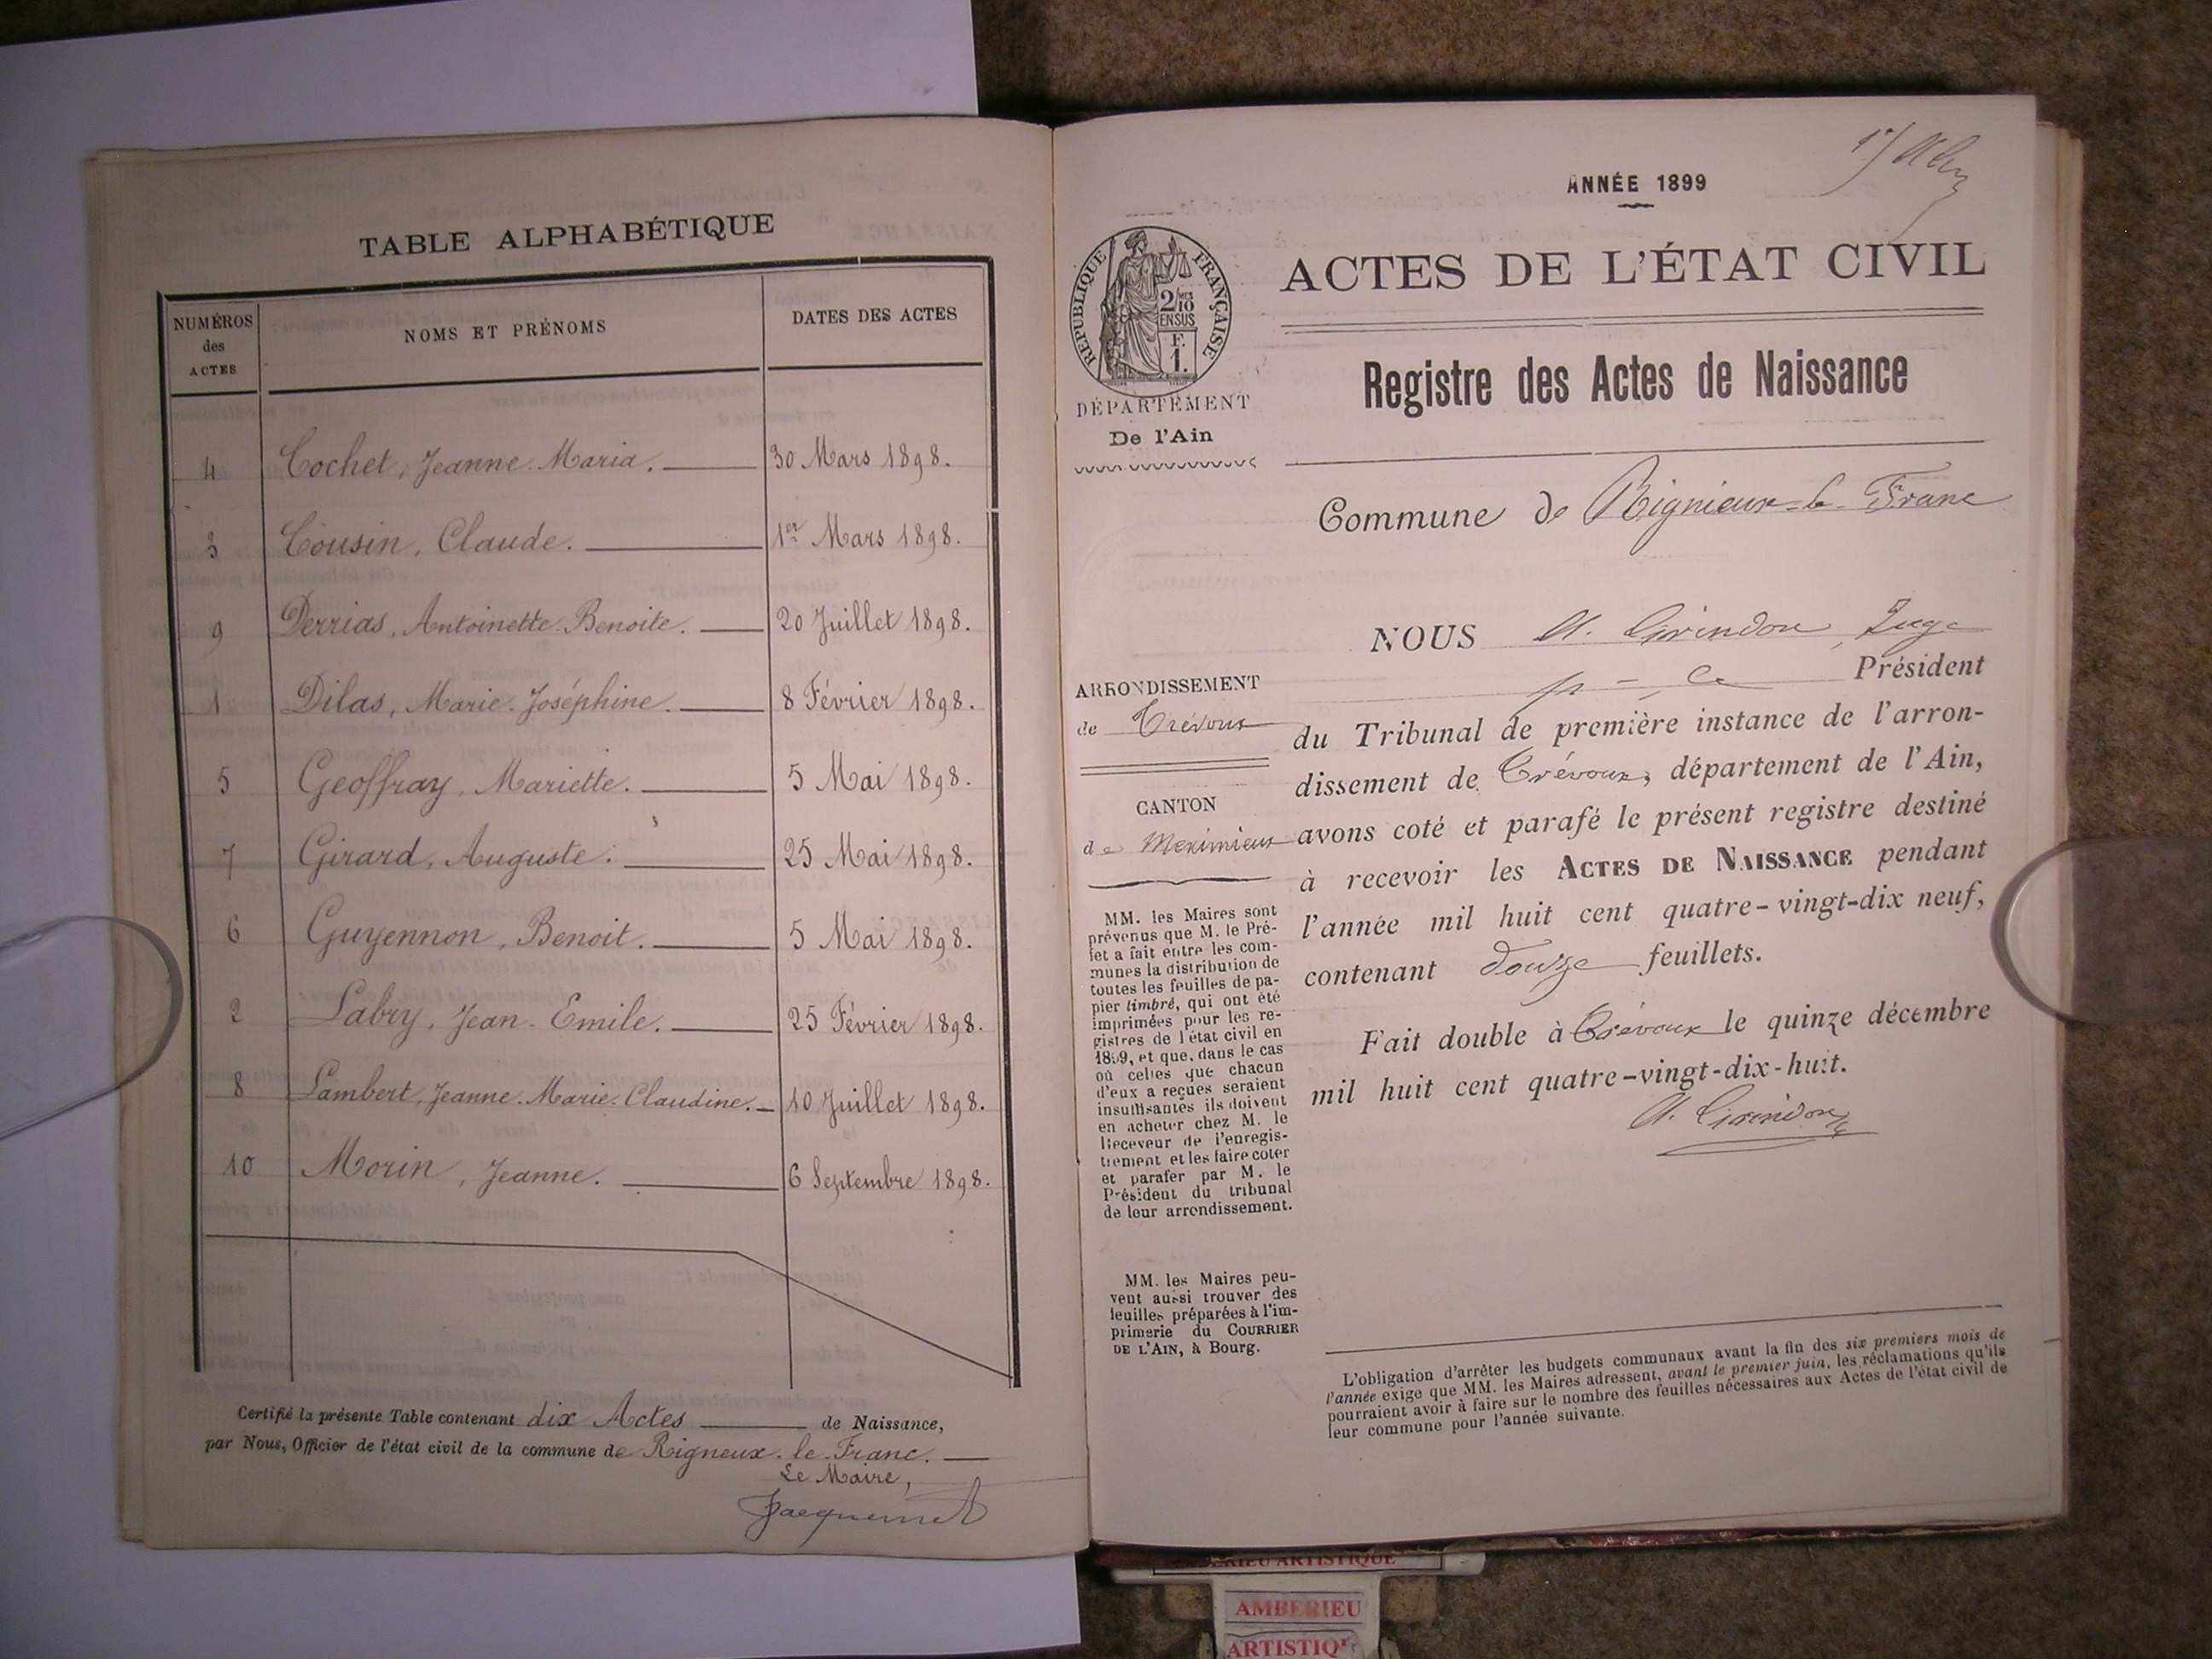 TABLE ALPHABÉTIQUE
NUMÉROS des ACTES NOMS ET PRÉNOMS DATES DES ACTES
4 Cochet, Jeanne Maria. 30 Mars 1898.
3 Cousin, Claude. 1er Mars 1898.
9 Derrias, Antoinette Benoite. 20 Juillet 1898.
1 Dilas, Marie Joséphine. 8 Février 1898.
5 Geoffray, Mariette. 5 Mai 1898.
7 Girard, Auguste. 25 Mai 1898.
6 Guyennon, Benoit. 5 Mai 1898.
2 Labry, Jean-Emile. 25 Février 1898.
8 Lambert, Jeanne Marie Claudine. 10 Juillet 1898.
10 Morin, Jeanne. 6 Septembre 1898.
Certifié la présente Table contenant dix Actes de Naissance,
par Nous, Officier de l'état civil de la commune de Rigneux-le-Franc.
Le Maire,
Jacquemet
ANNÉE 1899
RÉPUBLIQUE FRANÇAISE
2/10 MES
EN SUS
F.
1.
ACTES DE L'ÉTAT CIVIL
Registre des Actes de Naissance
DÉPARTEMENT
De l'Ain
Commune de Rignieux-le-Franc
ARRONDISSEMENT
de Trévoux
CANTON
de Meximieux
MM. les Maires sont
prévenus que M. le Pré-
fet a fait entre les com-
munes la distribution de
toutes les feuilles de pa-
pier timbré, qui ont été
imprimées pour les re-
gistres de l'état civil en
1899, et que, dans le cas
où celles que chacun
d'eux a reçues seraient
insuffisantes ils doivent
en acheter chez M. le
Receveur de l'enregis-
trement et les faire coter
et parafer par M. le
Président du tribunal
de leur arrondissement.
MM. les Maires peu-
vent aussi trouver des
feuilles préparées à l'im-
primerie du COURRIER
DE L'AIN, à Bourg.
NOUS A. Grindon, Juge
p. le Président
du Tribunal de première instance de l'arron-
dissement de Trévoux, département de l'Ain,
avons coté et parafé le présent registre destiné
à recevoir les ACTES DE NAISSANCE pendant
l'année mil huit cent quatre-vingt-dix neuf,
contenant douze feuillets.
Fait double à Trévoux le quinze décembre
mil huit cent quatre-vingt-dix-huit.
A. Grindon
L'obligation d'arrêter les budgets communaux avant la fin des six premiers mois de
l'année exige que MM. les Maires adressent, avant le premier juin, les réclamations qu'ils
pourraient avoir à faire sur le nombre des feuilles nécessaires aux Actes de l'état civil de
leur commune pour l'année suivante.
ARTISTIQUE
AMBERIEU
ARTISTIQ